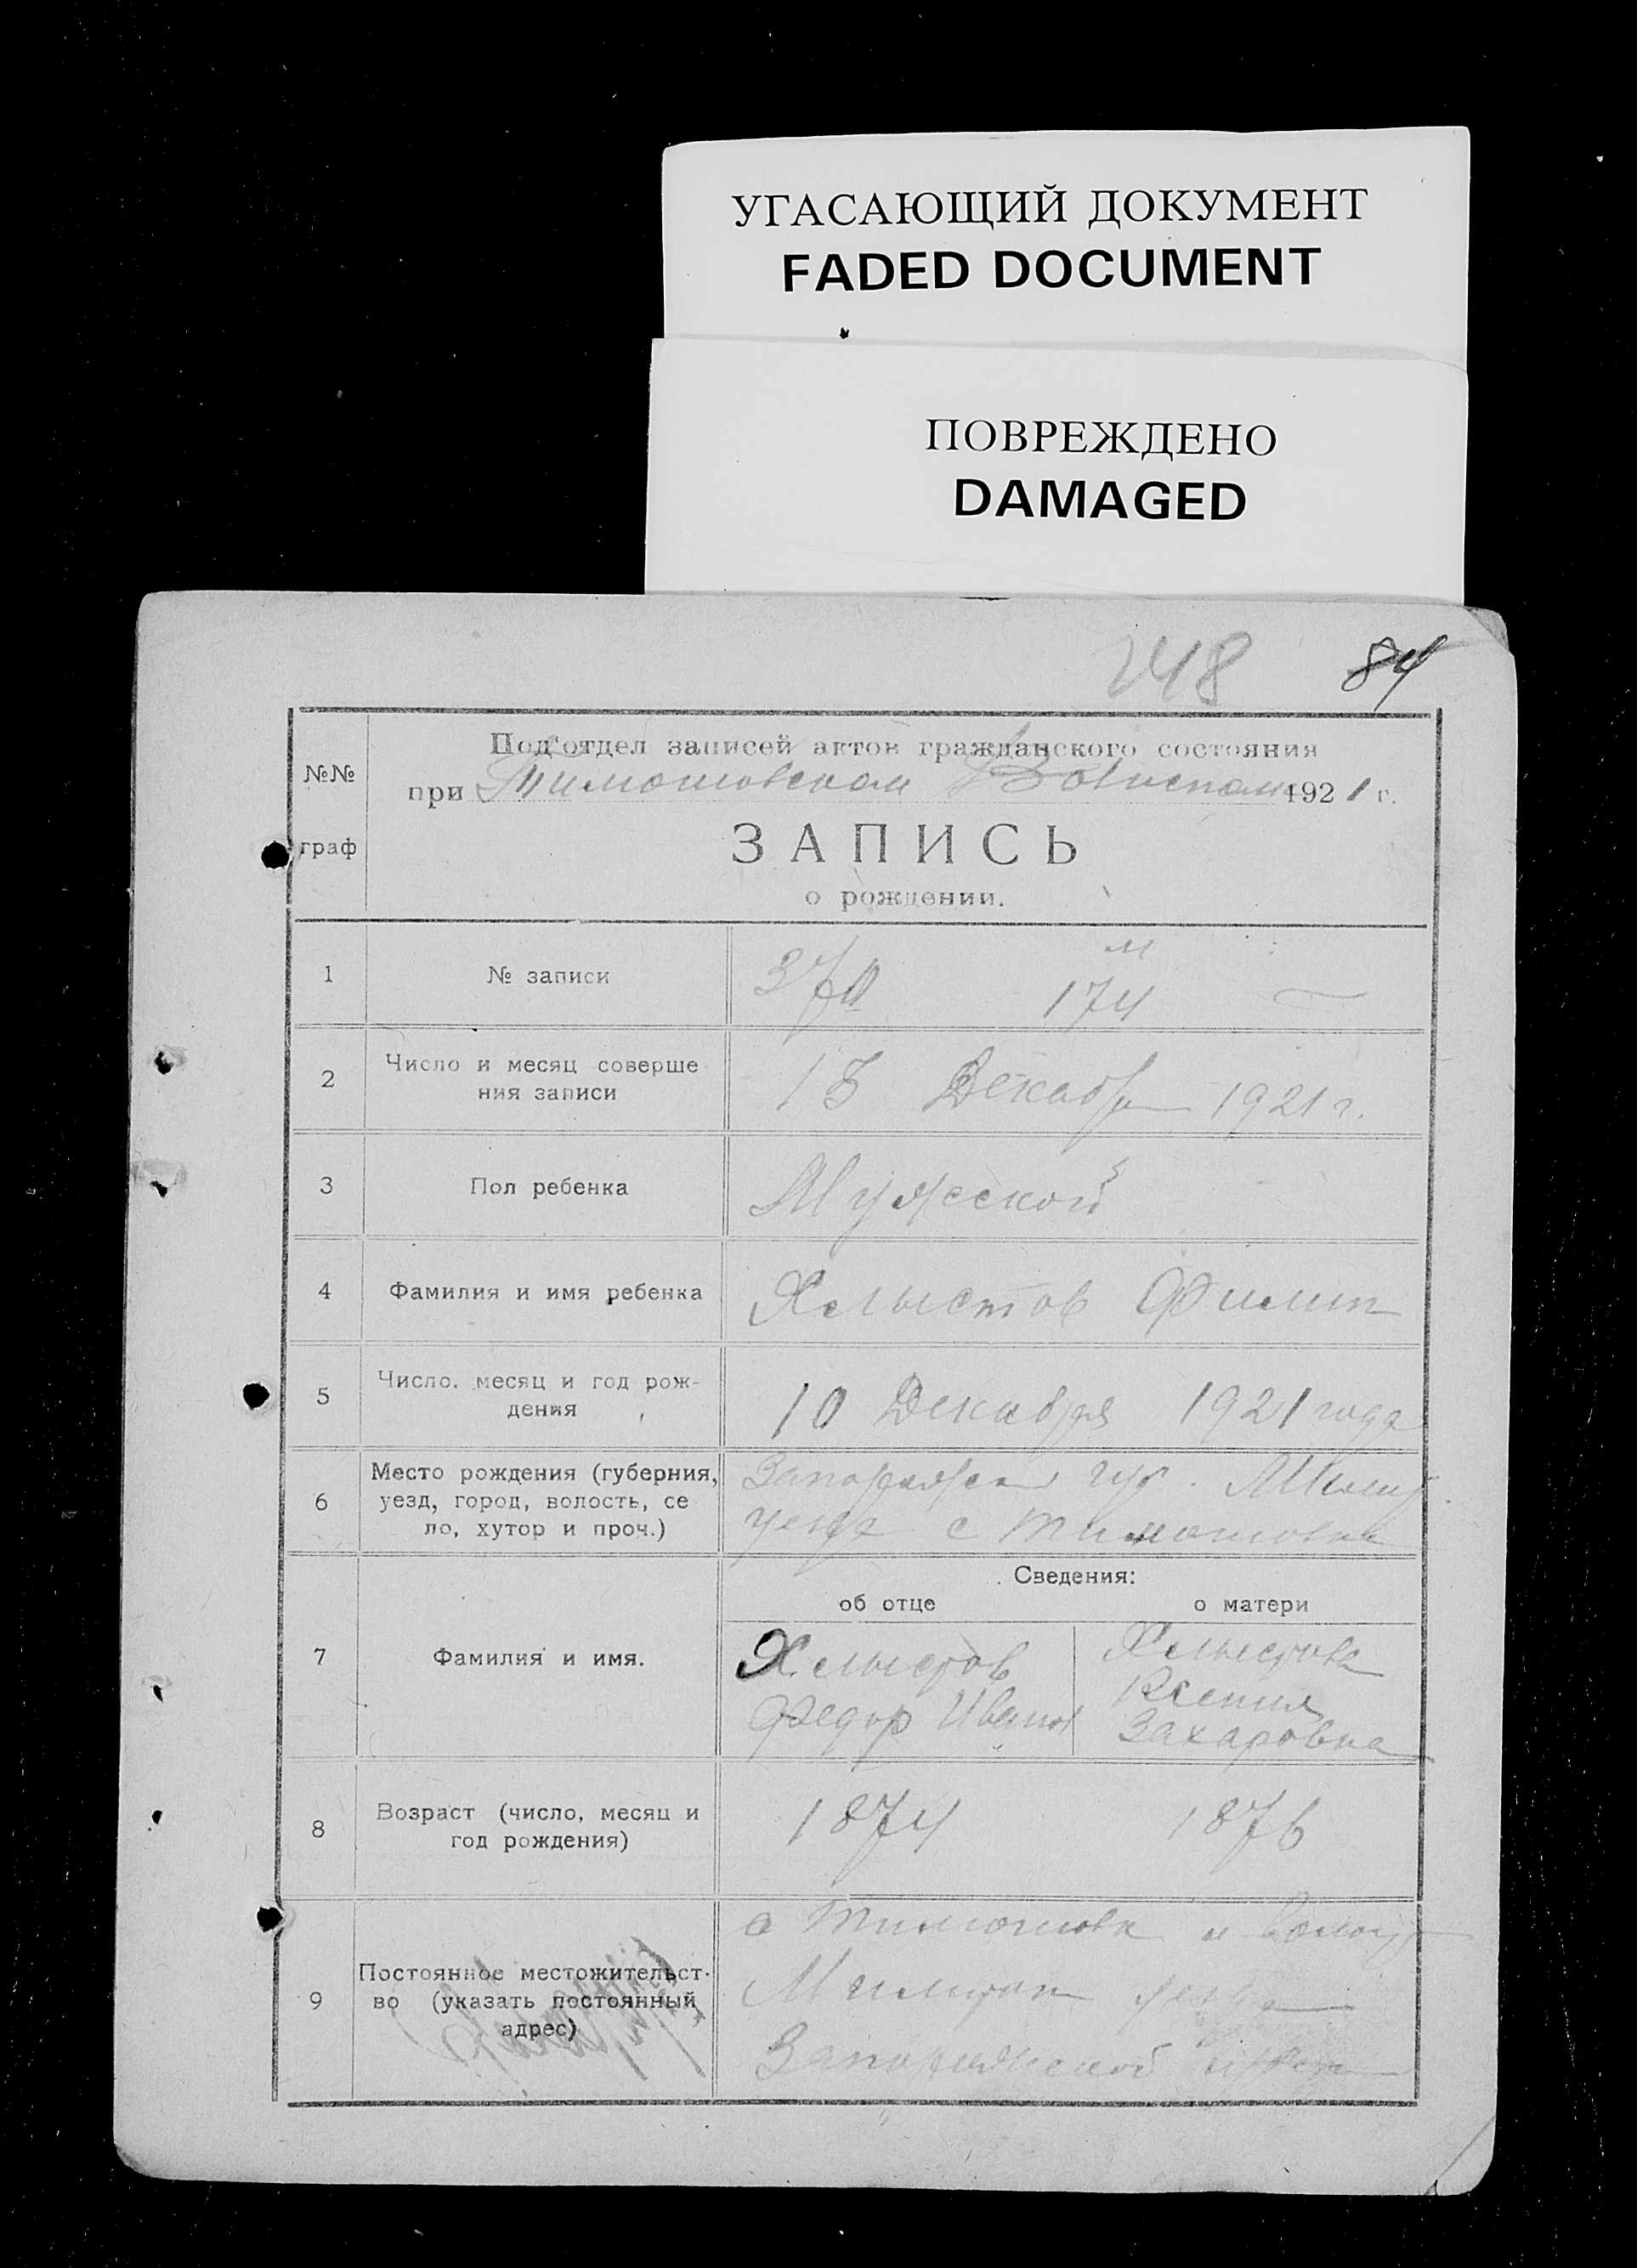 УГАСАЮЩИЙ ДОКУМЕНТ
FADED DOCUMENT
ПОВРЕЖДЕНО
DAMAGED
248 84
№№
граф
Под'отдел записей актов гражданского состояния
при Тимошовском Волиспол 1921 г.
ЗАПИСЬ
о рождении.
1 № записи 370 м
174
2 Число и месяц соверше
ния записи
13 Декабр 1921 г.
3 Пол ребенка Мужской
4 Фамилия и имя ребенка Хлыстов Филип
5 Число, месяц и год рож-
дения
10 Декабря 1921 года
6 Место рождения (губерния,
уезд, город, волость, се
ло, хутор и проч.)
Запорожск губ. Мелит.
уезда с Тимошовка
Сведения:
об отце о матери
7 Фамилия и имя.
Хлыстов
Федор Иванов
Хлыстова
Ксения
Захаровна
8 Возраст (число, месяц и
год рождения)
1874 1876
9 Постоянное местожительст-
во (указать постоянный
адрес)
с Тимошовка и волост
Мелитоп уезда
Запорожской